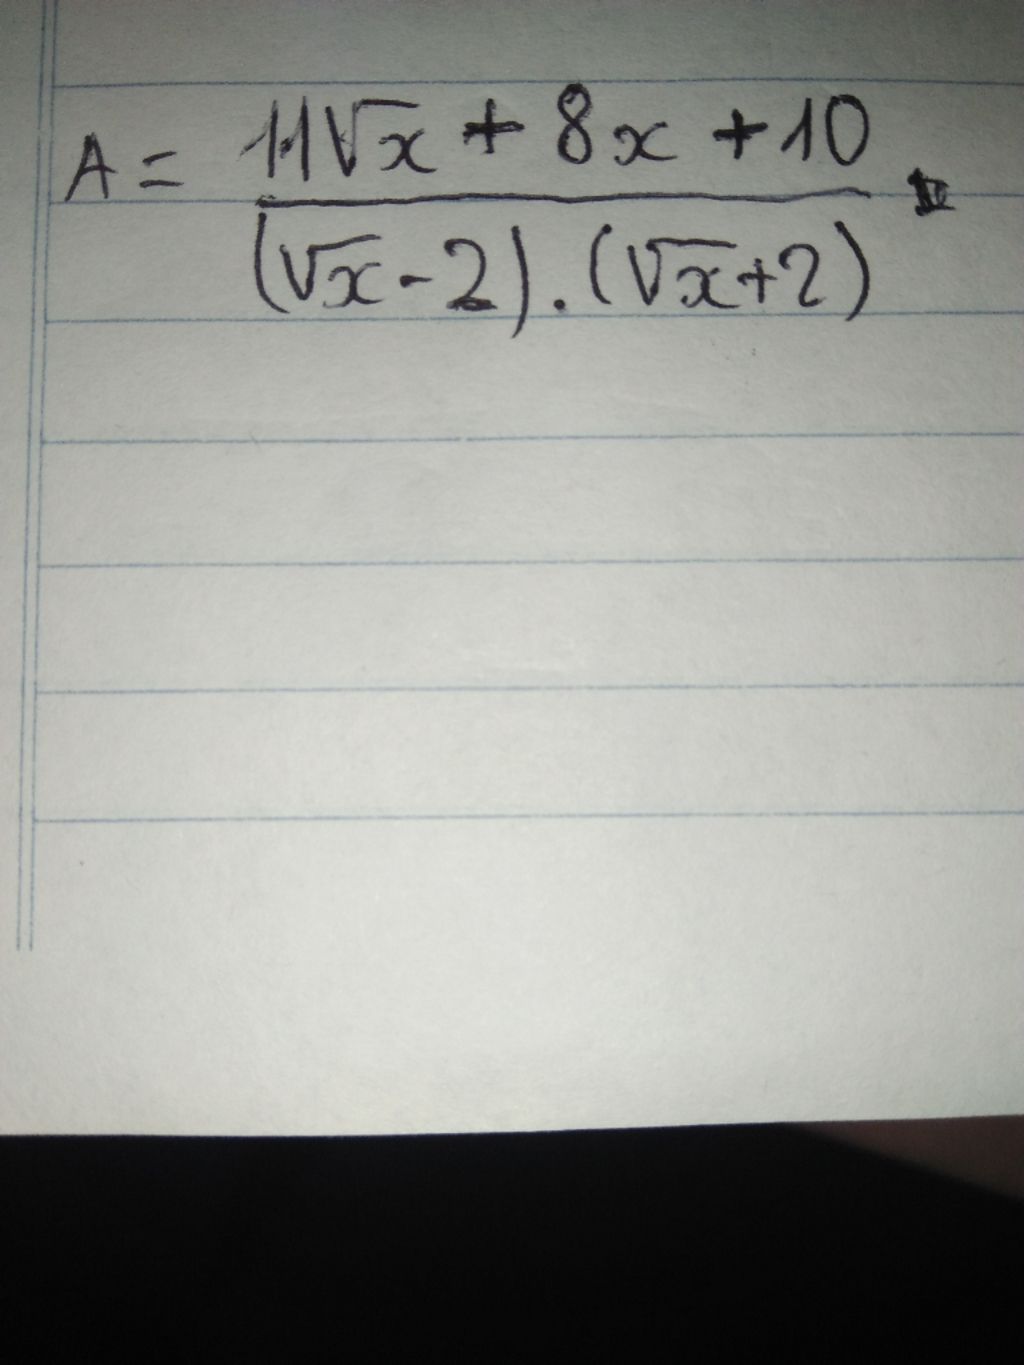 A = 11√x + 8x + 10
(√x - 2) . (√x + 2)